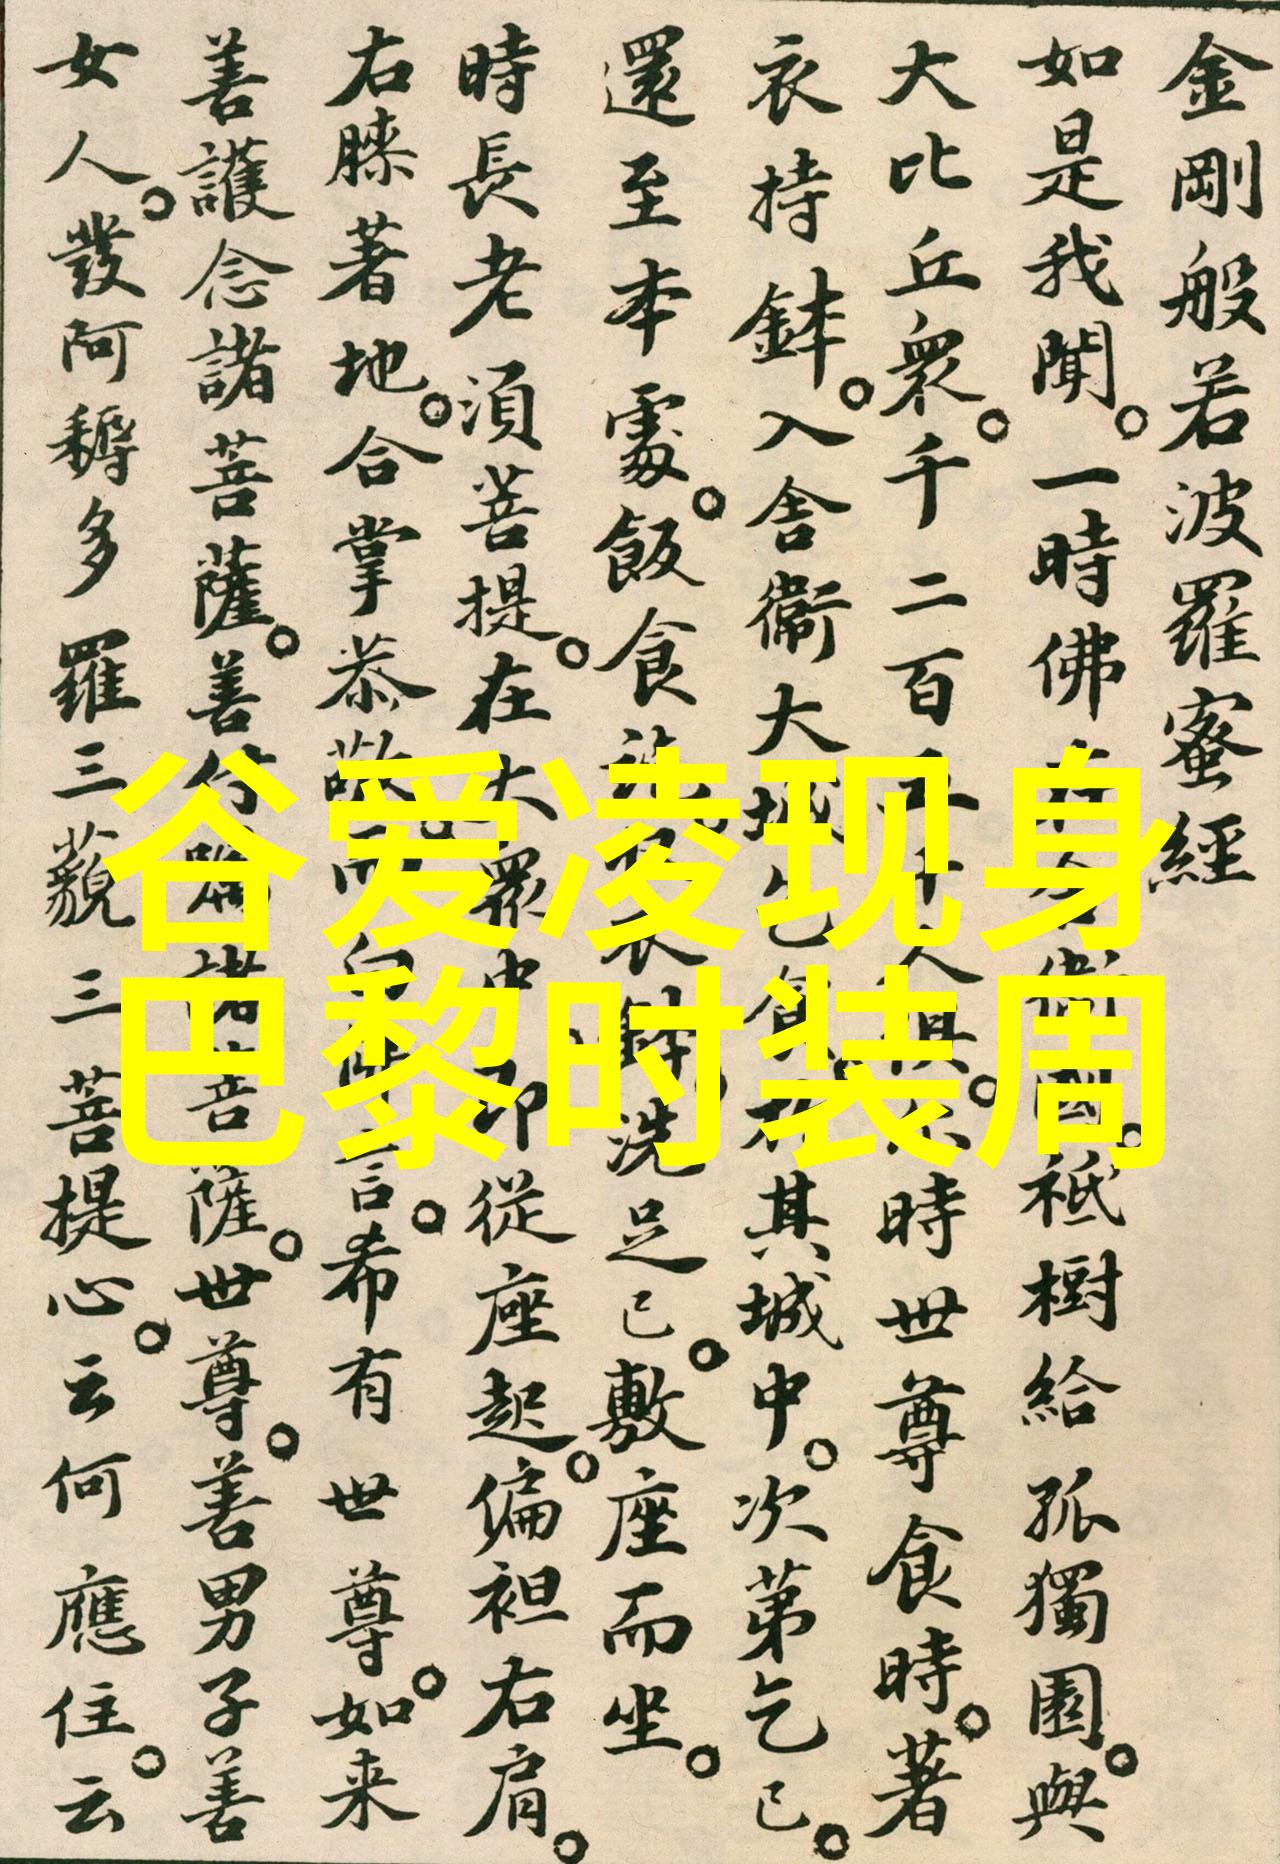 金剛般若波羅蜜經
如是我聞。一時佛在舍衛國。祇樹給孤獨園。與
大比丘衆。千二百五十人俱。尒時世尊食時。著
衣持鉢。入舍衛大城乞食。於其城中。次第乞已。
還至本處。飯食訖。收衣鉢。洗足已。敷座而坐。
時長老須菩提。在大衆中。即從座起。偏袒右肩。
右膝著地。合掌恭敬。而白佛言。希有世尊。如来
善護念諸菩薩。善付囑諸菩薩。世尊。善男子善
女人。發阿耨多羅三藐三菩提心。云何應住。云
谷爱凌现身
巴黎时装周